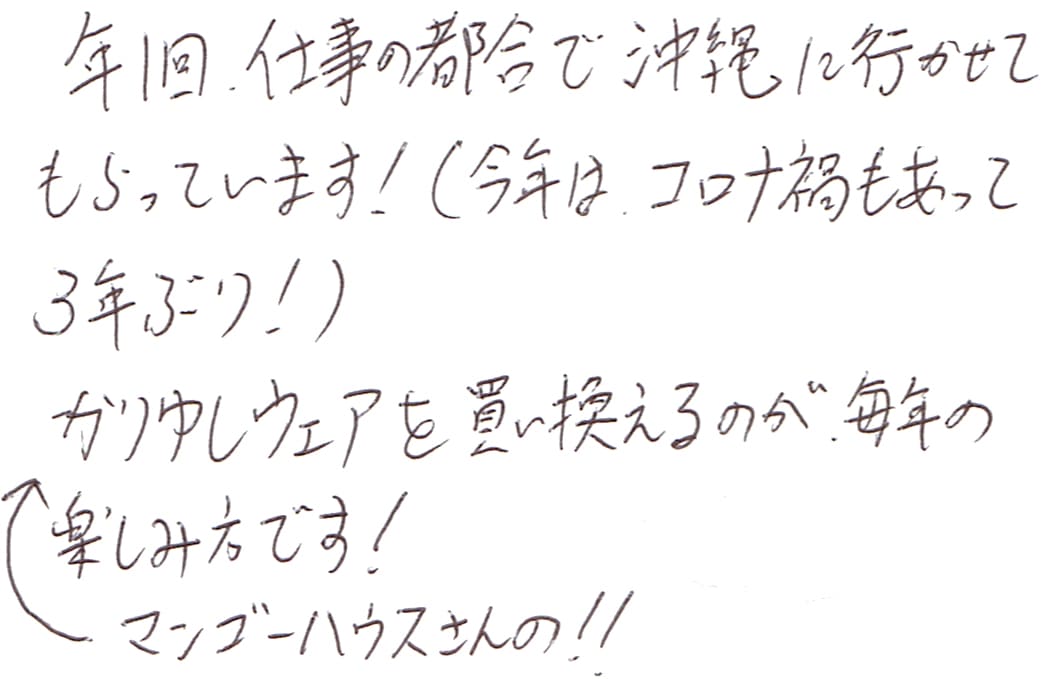 年1回、仕事の都合で沖縄に行かせて
もらっています!(今年は、コロナ禍もあって
3年ぶり!)
かりゆしウェアを買い換えるのが、毎年の
楽しみ方です!
マンゴーハウスさんの!!